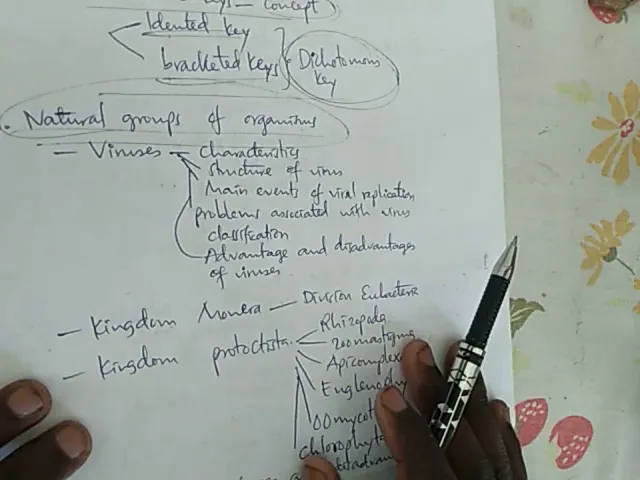 Keys - Concept
Idented key
bracketed keys
Dichotomous
key
. Natural groups of organisms
- Viruses - characteristics
structure of virus
Main events of viral replication
problems associated with virus
classification
Advantage and disadvantages
of viruses
- Kingdom Monera - Division Eubacteria
- Kingdom protoctista
Rhizopoda
zoomastigina
Apicomplexa
Oomycot
Chlorophyta